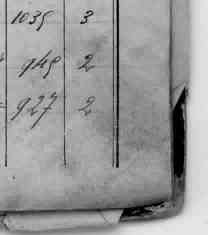 1035 3
949 2
927 2